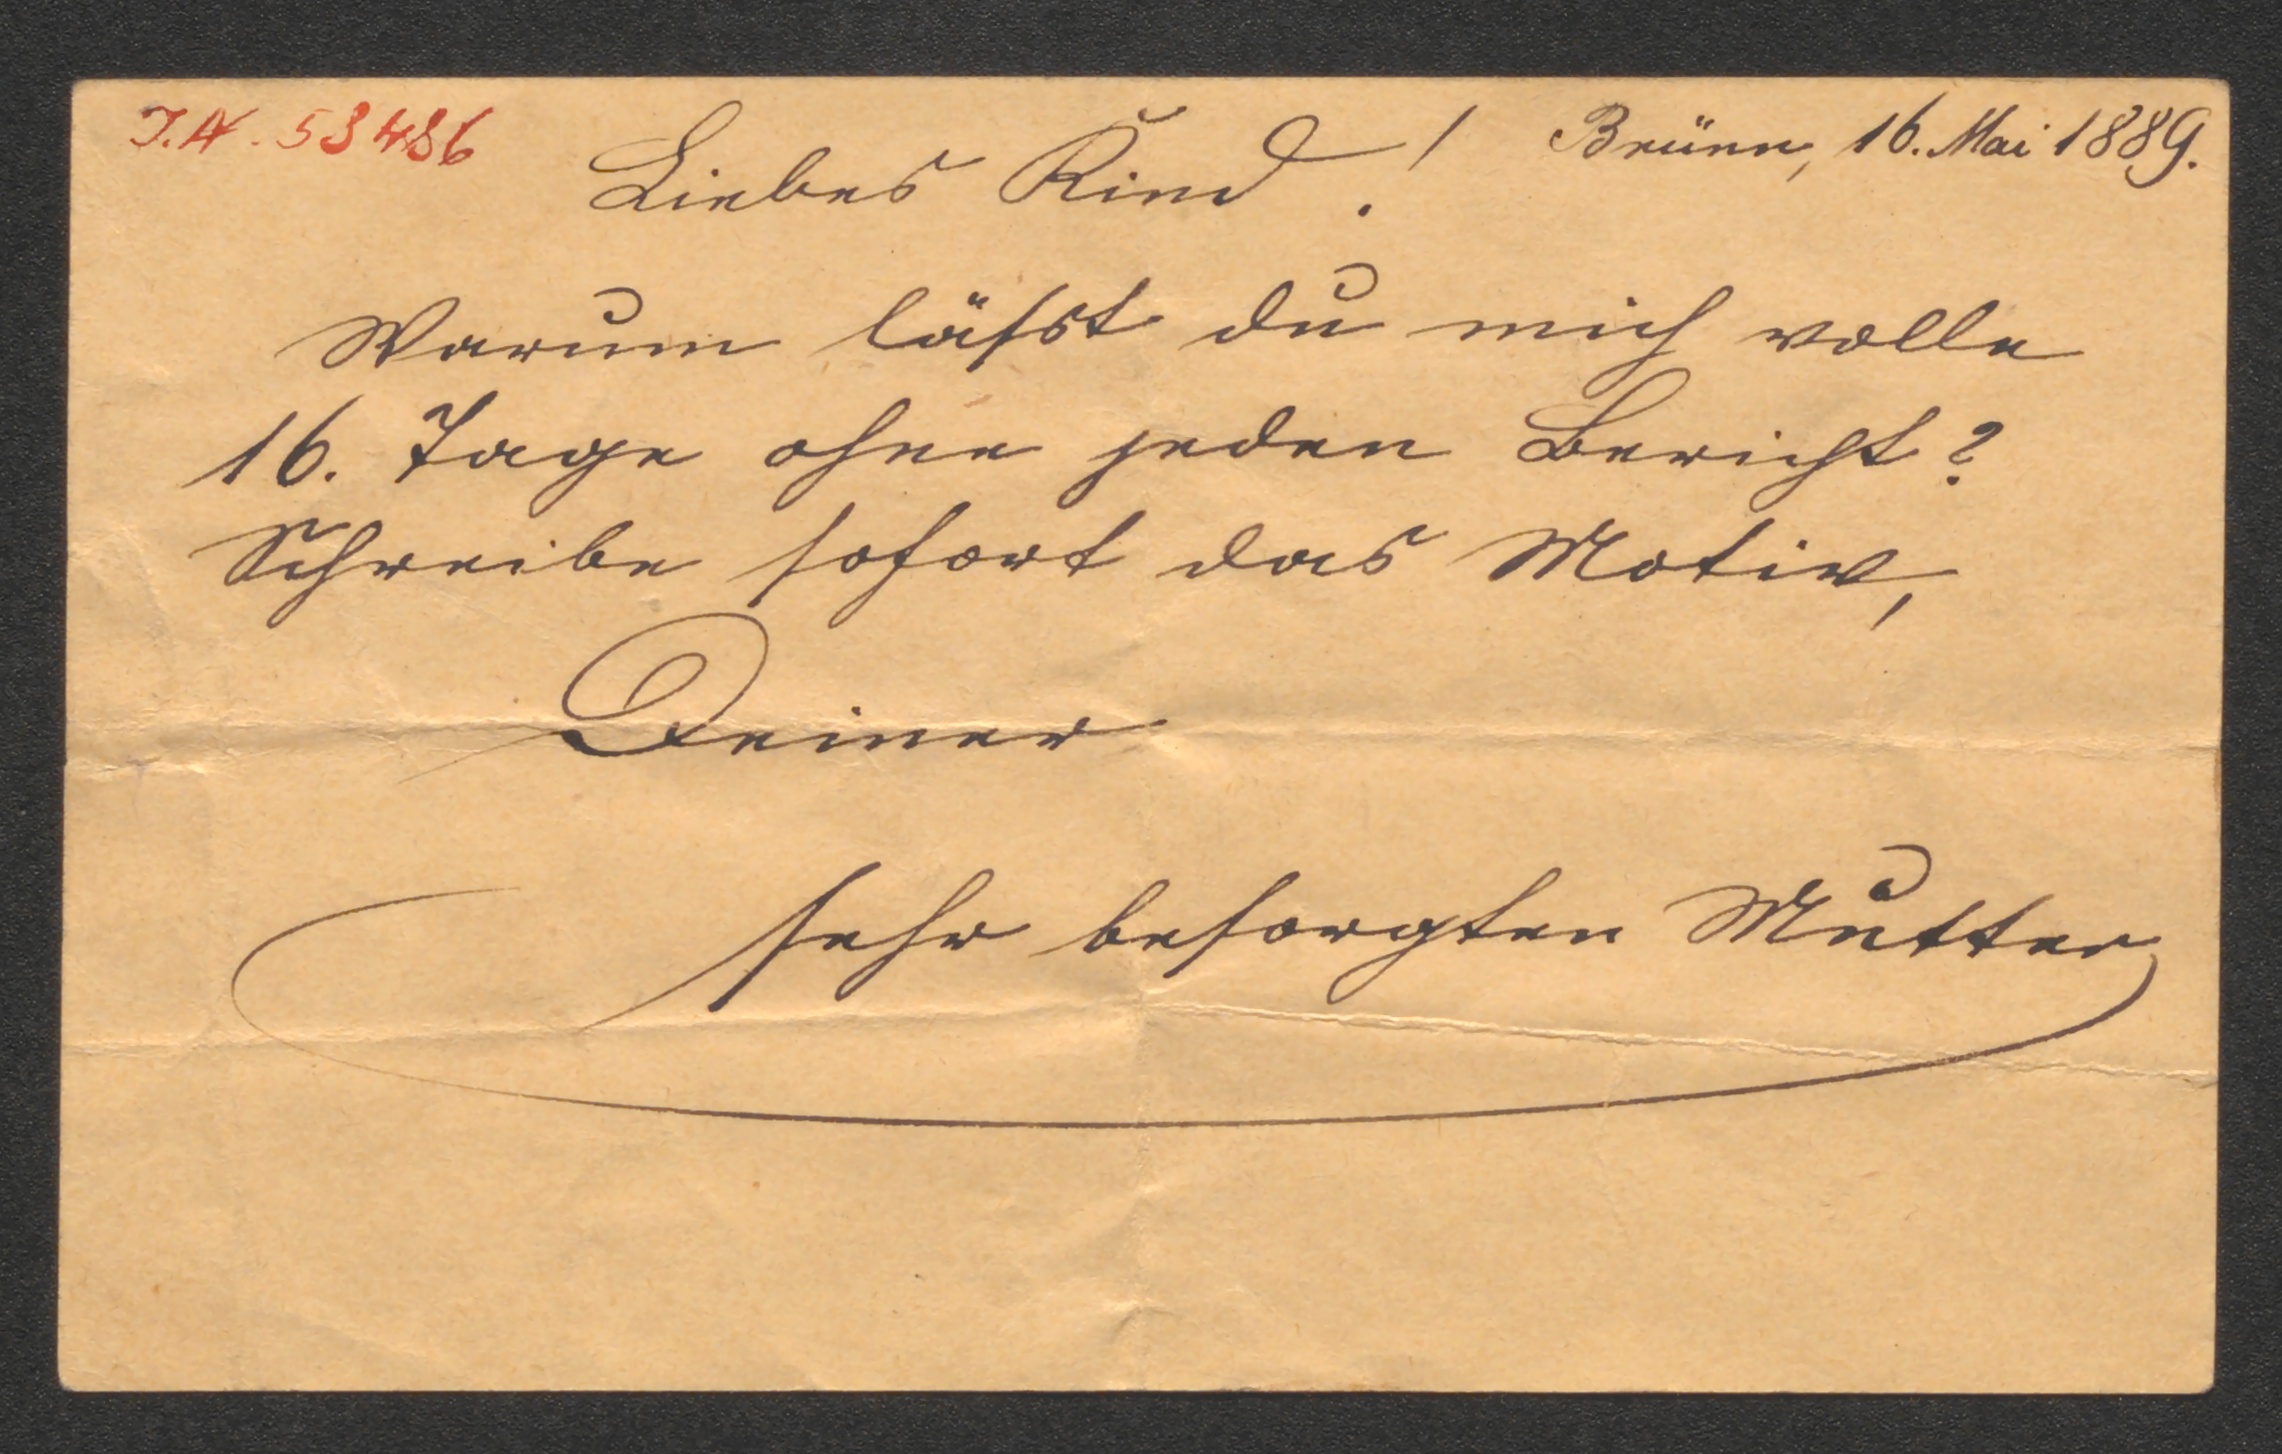 I.N. 53486
Brünn, 16. Mai 1889.
Liebes Kind!
Warum läſst du mich volle
16. Tage ohne jeden Bericht?
Schreibe sofort das Motiv,
Deiner
sehr besorgten Mutter